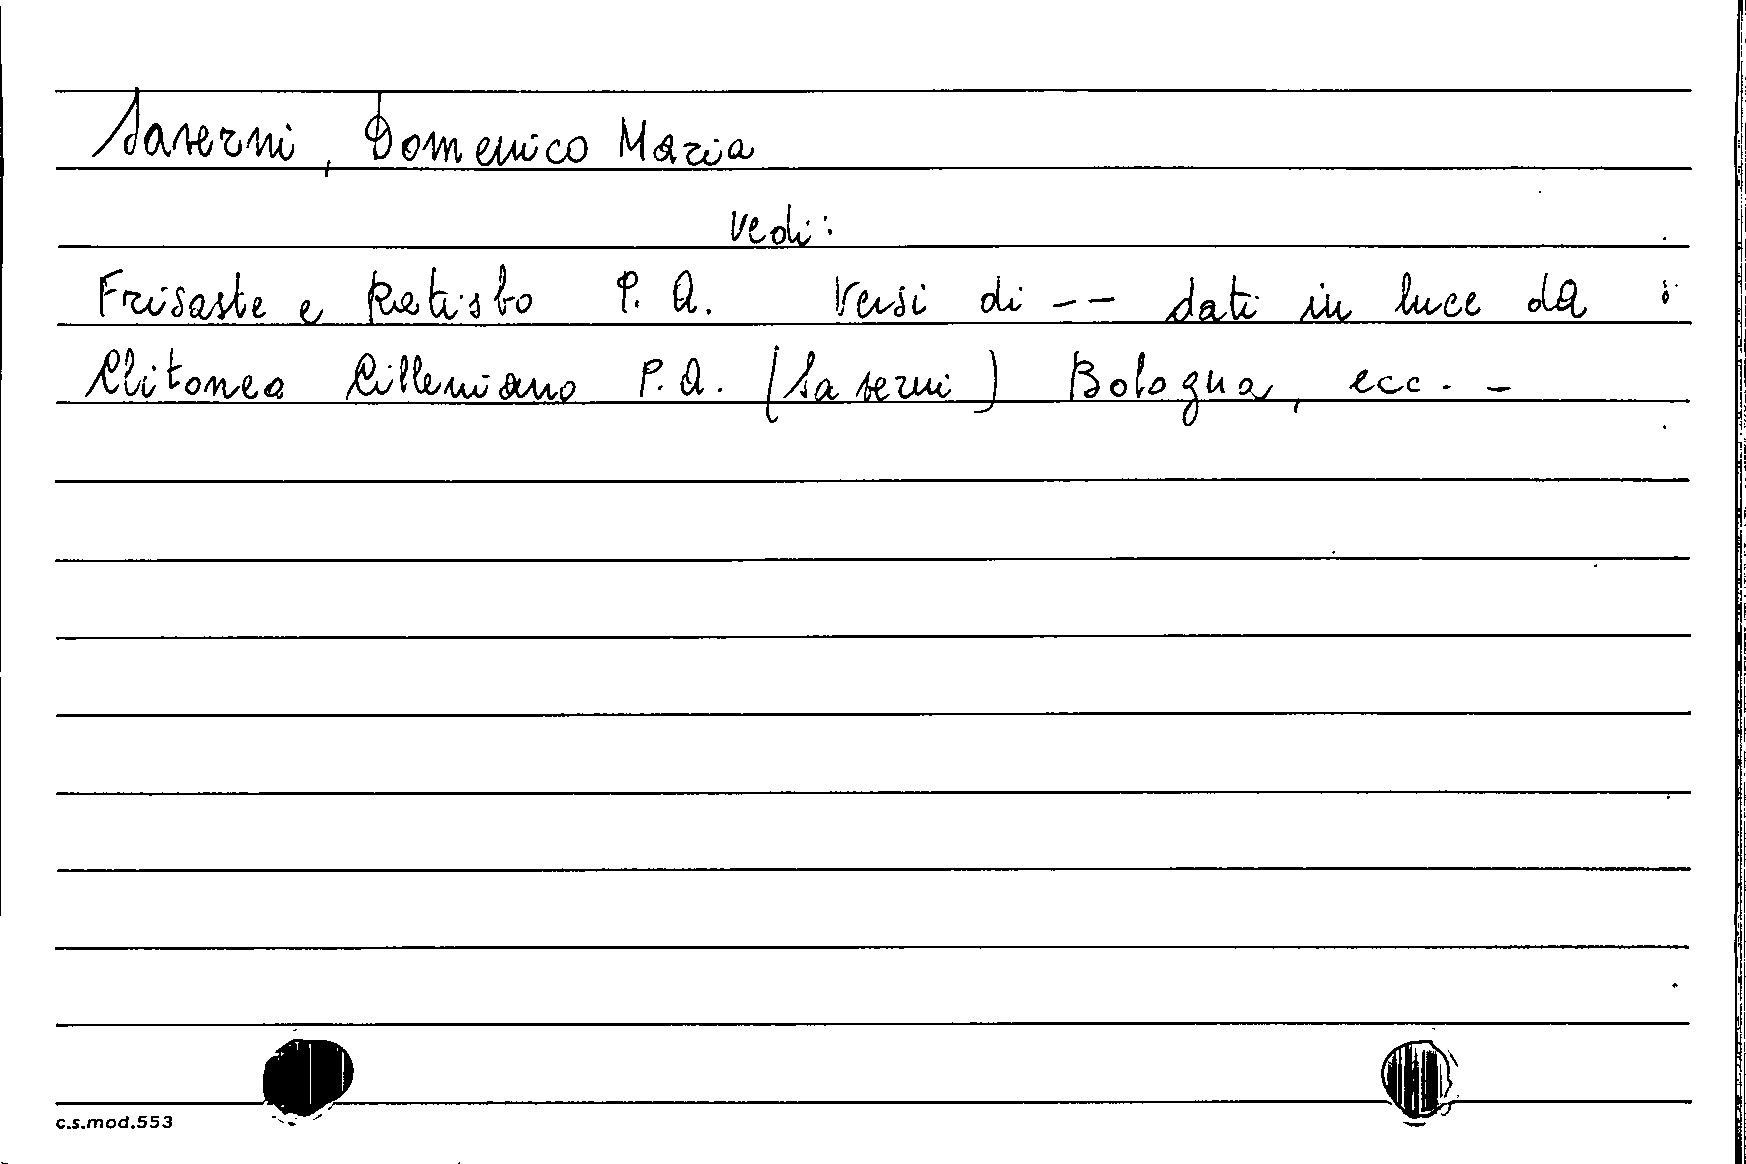 Saverni, Domenico Maria
vedi:
Frisaste e Ratisbo P. A. Versi di -- dati in luce da
Clitoneo Cilleniano P. A. (Saverni) Bologna, ecc. -
c.s.mod.553